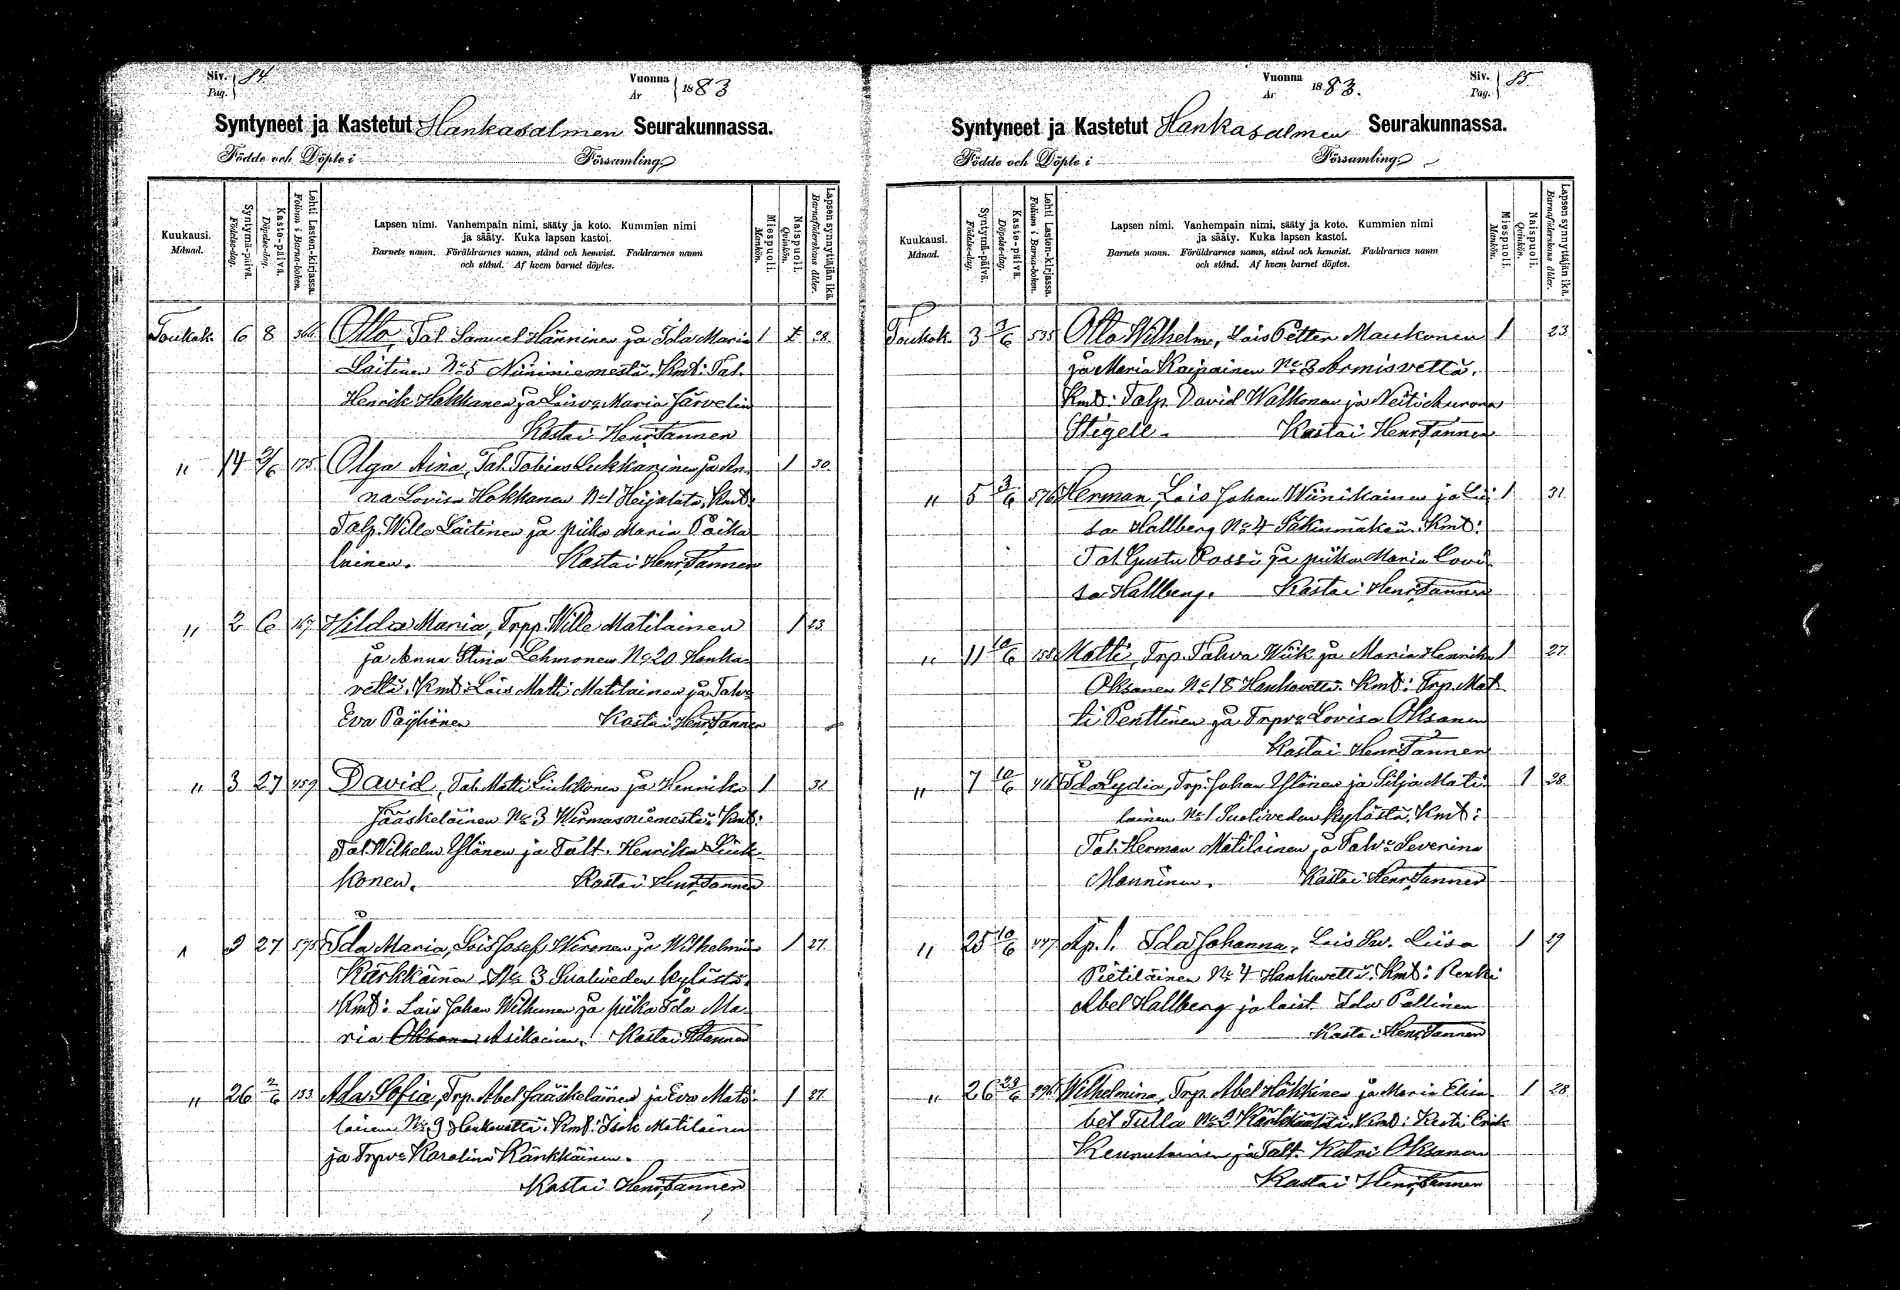 Siv. Pag. 84.
Vuonna År 1883
Syntyneet ja Kastetut Hankasalmen Seurakunnassa.
Födde och Döpte i Församling.
Kuukausi. Månad.
Syntymä-päivä. Födelse-dag.
Kaste-päivä. Döpelse-dag.
Lehti Lasten-kirjassa. Folium i Barna-boken.
Lapsen nimi. Vanhempain nimi, sääty ja koto. Kummien nimi
ja sääty. Kuka lapsen kastoi.
Barnets namn. Föräldrarnes namn, stånd och hemvist. Faddrarnes namn
och stånd. Af hvem barnet döptes.
Miespuoli. Mankön.
Naispuoli. Qvinkön.
Lapsen synnyttäjän ikä. Barnaföderskans ålder.
Toukok. 6 8 Otto, Tal. Samuel Hänninen ja Ida Maria 1 28.
Laitinen No 5 Niinimiemestä. Kmt: Tal.
Henrik Hokkanen ja Loisva Maria Järvelin
Kastoi Henr. Tannen
" 14 2/6 175 Olga Aina, Tal. Tobias Leskkaninen ja An- 1 30.
na Lovisa Hokkanen No 1 Kmt:
Talp. Wille Laitinen ja piika Maria Paika
lainen. Kastoi Henr. Tannen
" 2 6 167 Hilda Maria, Trpp. Wille Matilainen 1 23.
ja Anna Stina Lehmonen No 20 Hanka-
vettä. Kmt: Lois Matti Matilainen ja Talva
Eva Pöyhönen Kastoi Henr. Tannen
" 3 27 459 David, Tal. Matti Liukkonen ja Henrika 1 31.
Jääskeläinen No 3 Wirmasniemestä. Kmt:
Tal. Wilhelm Ylönen ja Talt. Henrika Liuk-
konen. Kastoi Henr. Tannen
9 27 595 Ida Maria, Lois Josef Wironen ja Wilhelmiina 1 27.
Kärkkäinen No 3 Suoliveden kylästä.
Kmt: Lois Johan Wilhunen ja piika Ida Ma-
ria Oksanen Asikainen. Kastoi H Tannen
" 26 2/6 153 Ada Sofia, Trp. Abel Jääskeläinen ja Eva Mati- 1 27.
lainen No 9 Hankavettä. Kmt: Isak Matilainen
ja Trpva Karolina Kärkkäinen.
Kastoi Henr. Tannen
Vuonna År 1883.
Siv. Pag. 85
Syntyneet ja Kastetut Hankasalmen Seurakunnassa.
Födde och Döpte i Församling.
Kuukausi. Månad.
Syntymä-päivä. Födelse-dag.
Kaste-päivä. Döpelse-dag.
Lehti Lasten-kirjassa. Folium i Barna-boken.
Lapsen nimi. Vanhempain nimi, sääty ja koto. Kummien nimi
ja sääty. Kuka lapsen kastoi.
Barnets namn. Föräldrarnes namn, stånd och hemvist. Faddrarnes namn
och stånd. Af hvem barnet döptes.
Miespuoli. Mankön.
Naispuoli. Qvinkön.
Lapsen synnyttäjän ikä. Barnaföderskans ålder.
Toukok. 3 3/6 535 Otto Wilhelm, Lois Petter Maukonen 1 23.
ja Maria Kaipainen No 3 Armisvettä.
Kmt: Talp. David Walkonen ja Neiti Aurora
Stigell. Kastoi Henr. Tannen
" 5 3/6 576 Herman, Lois Johan Wiinikainen ja Lii- 1 31.
sa Hallberg No 4 Säkinmäkeä. Kmt:
Tal. Gusta Rossi ja piika Maria Lovi-
sa Hallberg. Kastoi Henr. Tannen
" 11 10/6 158 Matti, Trp. Tahva Wiik ja Maria Henrika 1 27.
Oksanen No 18 Hankavettä. Kmt: Trp. Mat-
ti Penttinen ja Trpva Lovisa Oksanen
Kastoi Henr. Tannen
" 7 10/6 416 Ida Lydia, Trp. Johan Ylönen ja Silja Mati- 1 28.
lainen No 1 Suoliveden kylästä. Kmt:
Tal. Herman Matilainen ja Talva Severina
Manninen. Kastoi Henr. Tannen
" 25 10/6 447 Äp. l. Ida Johanna, Lois Liisa 1 29
Pietiläinen No 4 Hankavettä. Kmt: Renki
Abel Hallberg ja loist. Ida Pallinen
Kastoi Henr. Tannen
" 26 23/6 Wilhelmina, Trp. Abel Häkkinen ja Maria Elisa- 1 28.
bet Tulla No 2 Kmt: Erik
ja Talt. Katri Oksanen
Kastoi Henr. Tannen